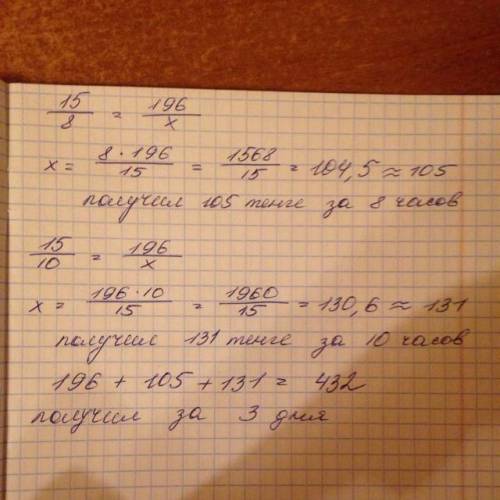 15/8 = 196/x
x = 8·196/15 = 1568/15 = 104,5 ≈ 105
получил 105 тенге за 8 часов
15/10 = 196/x
x = 196·10/15 = 1960/15 = 130,6 ≈ 131
получил 131 тенге за 10 часов
196 + 105 + 131 = 432
получил за 3 дня